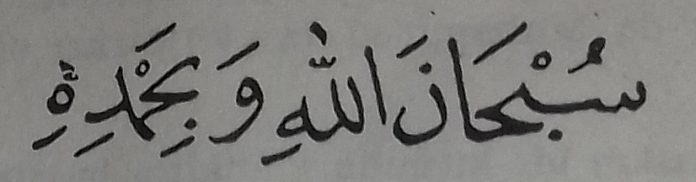 سُبْحَانَ اللّٰهِ وَ بِحَمْدِهٖ